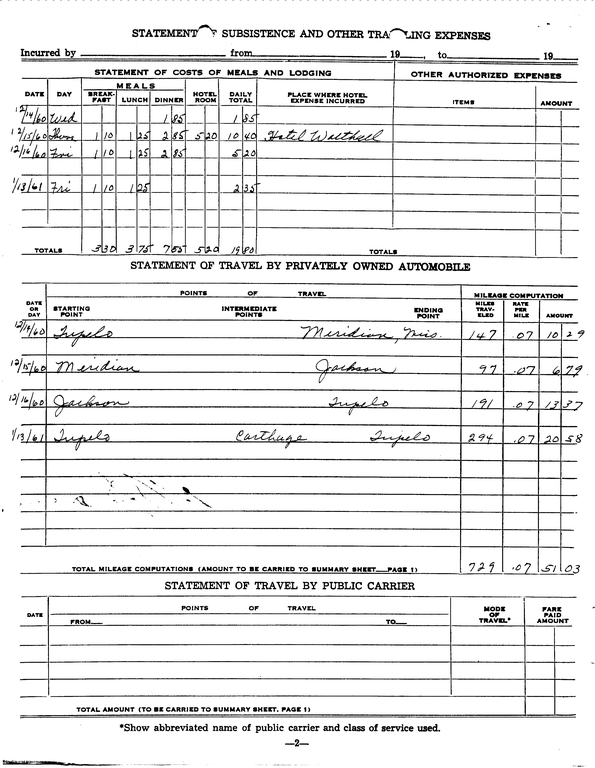 STATEMENT OF SUBSISTENCE AND OTHER TRAVELING EXPENSES
Incurred by from 19 , to 19
STATEMENT OF COSTS OF MEALS AND LODGING OTHER AUTHORIZED EXPENSES
MEALS
DATE DAY BREAK-FAST LUNCH DINNER HOTEL ROOM DAILY TOTAL PLACE WHERE HOTEL EXPENSE INCURRED ITEMS AMOUNT
12/14/60 Wed 1 85 1 85
12/15/60 Thurs 1 10 1 25 2 85 5 20 10 40 Hotel
12/16/60 Fri 1 10 1 25 2 85 5 20
1/13/61 Fri 1 10 1 25 2 35
TOTALS 3 30 3 75 7 55 5 20 19 80 TOTALS
STATEMENT OF TRAVEL BY PRIVATELY OWNED AUTOMOBILE
POINTS OF TRAVEL MILEAGE COMPUTATION
DATE OR DAY STARTING POINT INTERMEDIATE POINTS ENDING POINT MILES TRAV-ELED RATE PER MILE AMOUNT
12/14/60 Tupelo Meridian, Miss. 147 .07 10 29
12/15/60 Meridian Jackson 97 .07 6 79
12/16/60 Jackson Tupelo 191 .07 13 37
1/13/61 Tupelo Carthage Tupelo 294 .07 20 58
TOTAL MILEAGE COMPUTATIONS (AMOUNT TO BE CARRIED TO SUMMARY SHEET—PAGE 1) 729 .07 51 03
STATEMENT OF TRAVEL BY PUBLIC CARRIER
DATE POINTS OF TRAVEL MODE OF TRAVEL* FARE PAID AMOUNT
FROM— TO—
TOTAL AMOUNT (TO BE CARRIED TO SUMMARY SHEET, PAGE 1)
*Show abbreviated name of public carrier and class of service used.
—2—